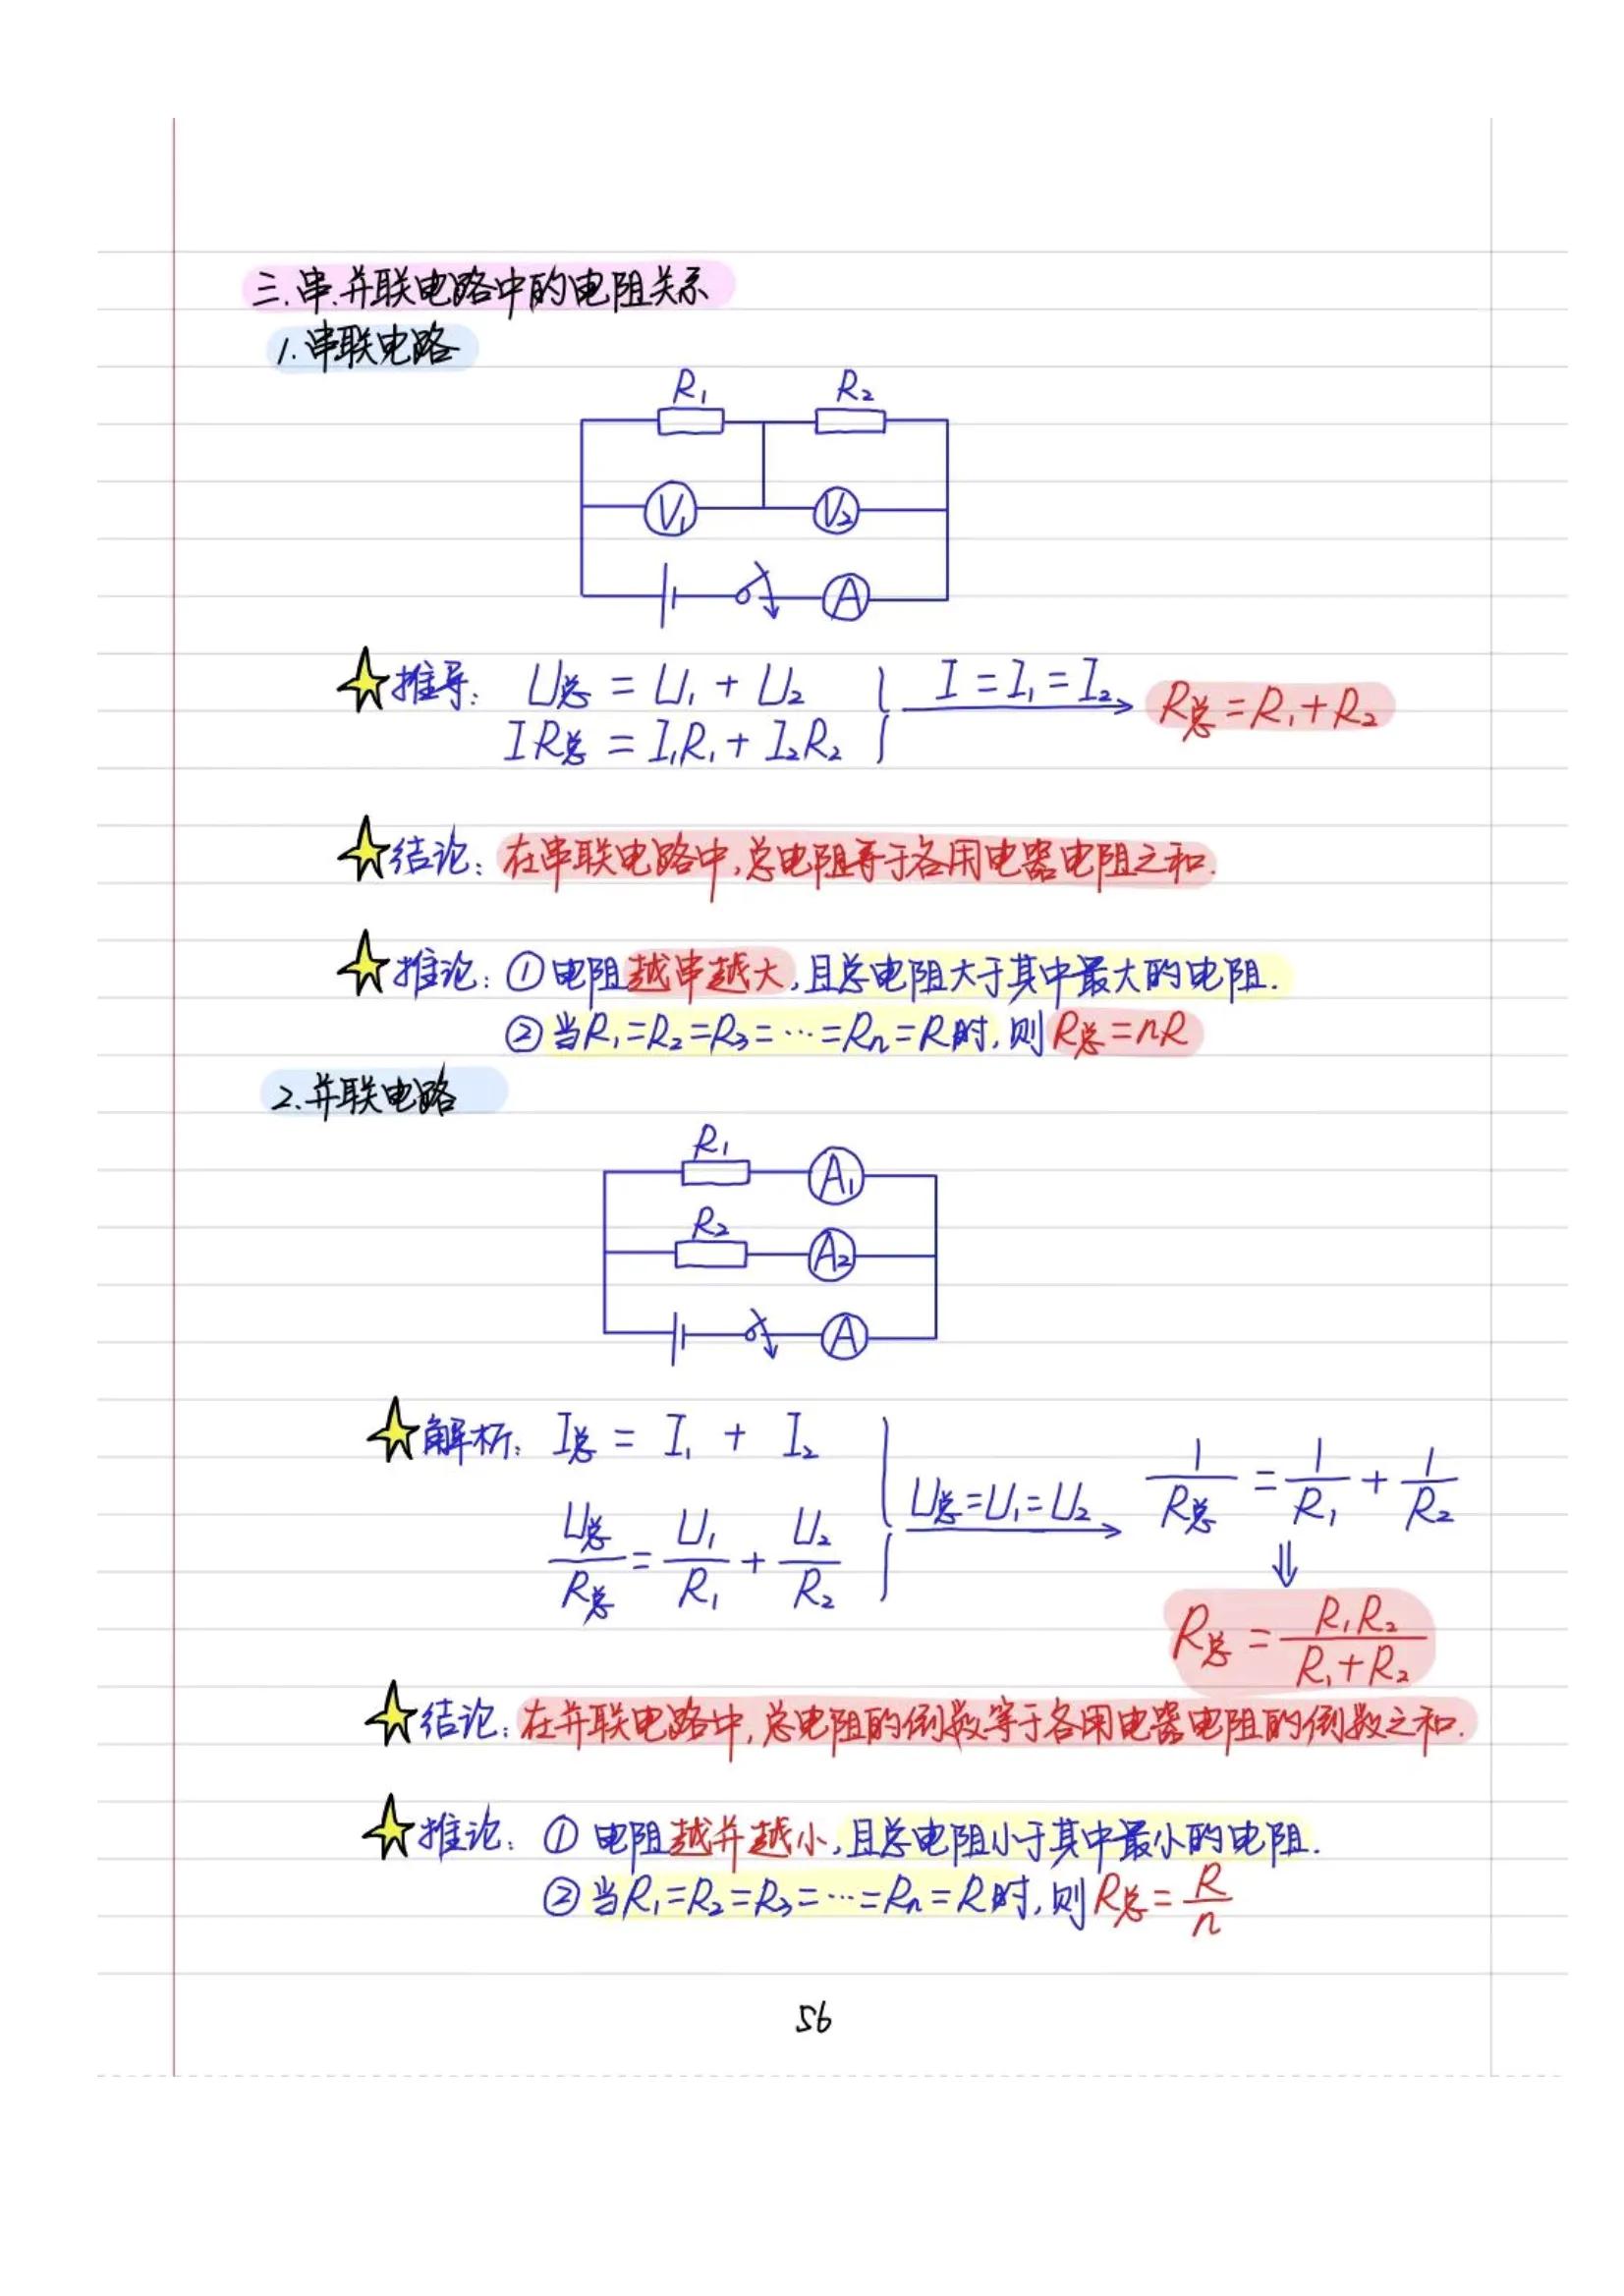 三.串.并联电路中的电阻关系
1.串联电路
R₁ R₂
V₁ V₂
A
推导: U总 = U₁ + U₂ I = I₁ = I₂ R总 = R₁ + R₂
IR总 = I₁R₁ + I₂R₂
结论: 在串联电路中,总电阻等于各用电器电阻之和.
推论: ① 电阻越串越大,且总电阻大于其中最大的电阻.
② 当R₁=R₂=R₃=…=Rn=R时,则R总=nR
2.并联电路
R₁ A₁
R₂ A₂
A
解析: I总 = I₁ + I₂
U总/R总 = U₁/R₁ + U₂/R₂ U总=U₁=U₂ 1/R总 = 1/R₁ + 1/R₂
⇓
R总 = R₁R₂/R₁+R₂
结论: 在并联电路中,总电阻的倒数等于各用电器电阻的倒数之和.
推论: ① 电阻越并越小,且总电阻小于其中最小的电阻.
② 当R₁=R₂=R₃=…=Rn=R时,则R总=R/n
56